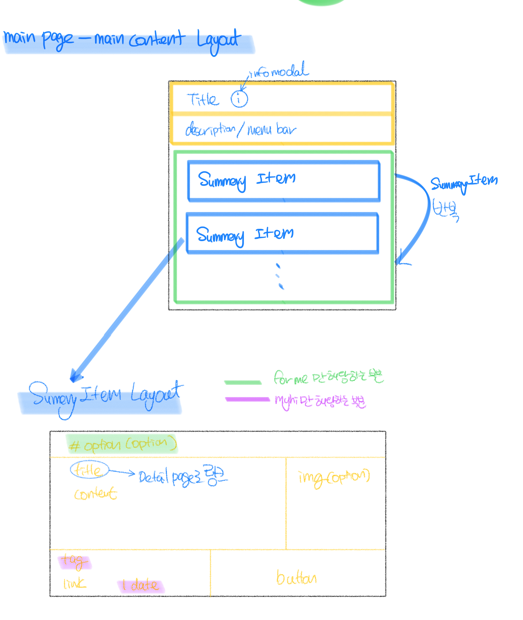 main page – main content Layout
info modal
Title i
description / menu bar
Summery Item
Summery Item
Summery Item
반복
Sumery Item Layout
for me 만 해당하는 부분
만 해당하는 부분
# option (option)
title → Detail page로 링크
content
img (option)
tag
link
| date
button